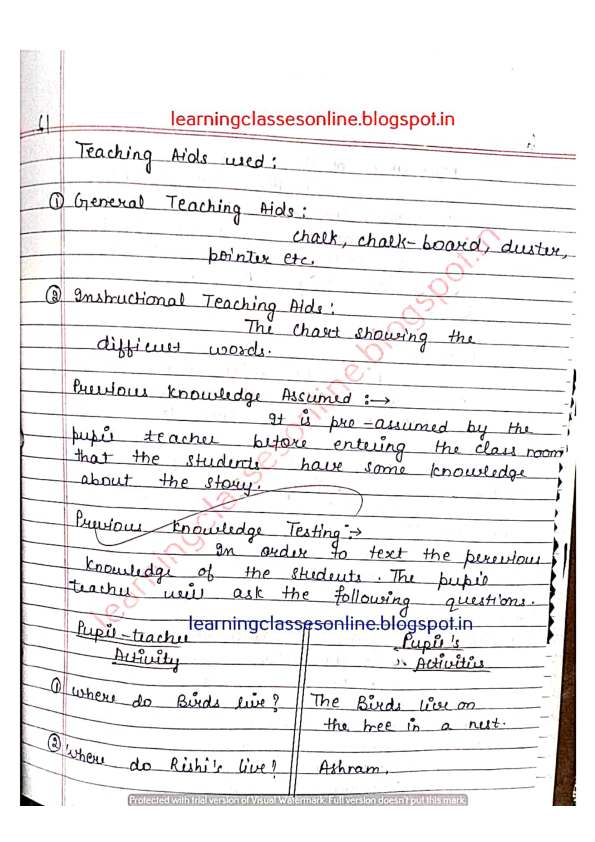 learningclassesonline.blogspot.in
61
Teaching Aids used :
① General Teaching Aids :
chalk, chalk-board, duster,
pointer etc.
② Instructional Teaching Aids :
The chart showing the
difficult words.
Previous Knowledge Assumed :→
It is pre-assumed by the
pupil teacher before entering the class room
that the students have some knowledge
about the story.
Previous Knowledge Testing :→
In order to text the perevious
knowledge of the students. The pupil
teacher will ask the following questions.
learningclassesonline.blogspot.in
Pupil-teacher Pupil's
Activity Activities
① where do Birds live? The Birds live on
the tree in a nest.
② where do Rishi's live? Ashram.
learningclassesonline.blogspot.in
Protected with trial version of Visual Watermark. Full version doesn't put this mark.